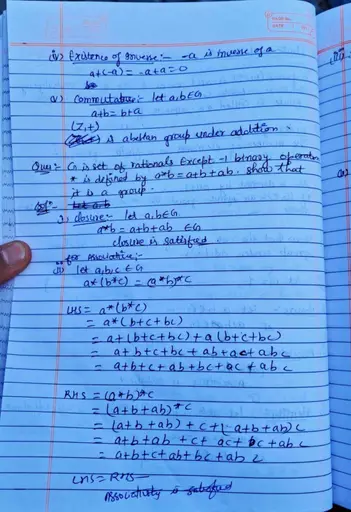 iv) Existence of Inverse:- -a is inverse of a
a+(-a) = -a+a=0
v) Commutative:- let a,b∈G
a+b= b+a
(Z,+)
is abelian group under addition.
Ques:- G is set of rationals except -1 binary operation
* is defined by a*b=a+b+ab. Show that
it is a group.
Sol:- let a,b
i) closure:- let a,b∈G
a*b = a+b+ab ∈G
closure is satisfied
for Associative:-
ii) let a,b,c ∈ G
a*(b*c) = (a*b)*c
LHS = a*(b*c)
= a*(b+c+bc)
= a+(b+c+bc)+a(b+c+bc)
= a+b+c+bc+ab+ac+abc
= a+b+c+ab+bc+ac+abc
RHS = (a*b)*c
= (a+b+ab)*c
= (a+b+ab)+c+(a+b+ab)c
= a+b+ab+c+ac+bc+abc
= a+b+c+ab+bc+abc
LHS = RHS
Associativity is satisfied